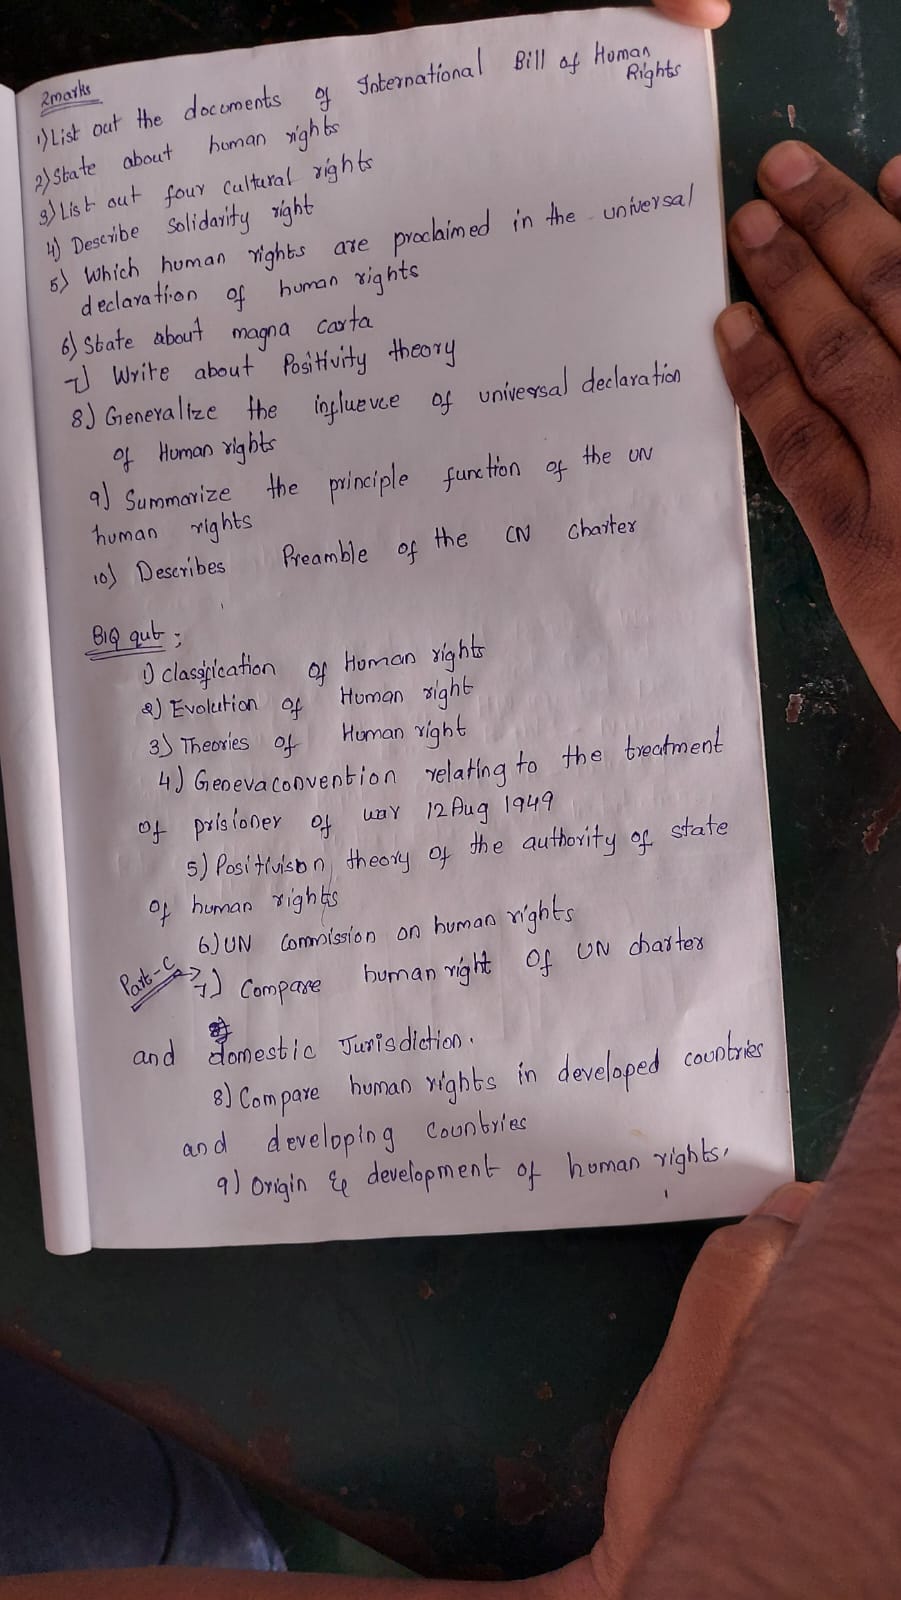 2marks
1) List out the documents of International Bill of Human
Rights
2) State about human rights
3) List out four cultural rights
4) Describe Solidarity right
5) Which human rights are proclaimed in the universal
declaration of human rights
6) State about magna carta
7) Write about Positivity theory
8) Generalize the influevce of universal declaration
of Human rights
9) Summarize the principle function of the UN
human rights
10) Describes Preamble of the CN Charter
BIQ qut ;
1) classification of Human rights
2) Evolution of Human right
3) Theories of Human right
4) Geneva convention relating to the treatment
of prisioner of war 12 Aug 1949
5) Positivison theory of the authority of state
of human rights
6) UN Commission on human rights
Part-C → 7) Compare human right of UN charter
and domestic Jurisdiction.
8) Compare human rights in developed countries
and developing countries
9) Origin & development of human rights.